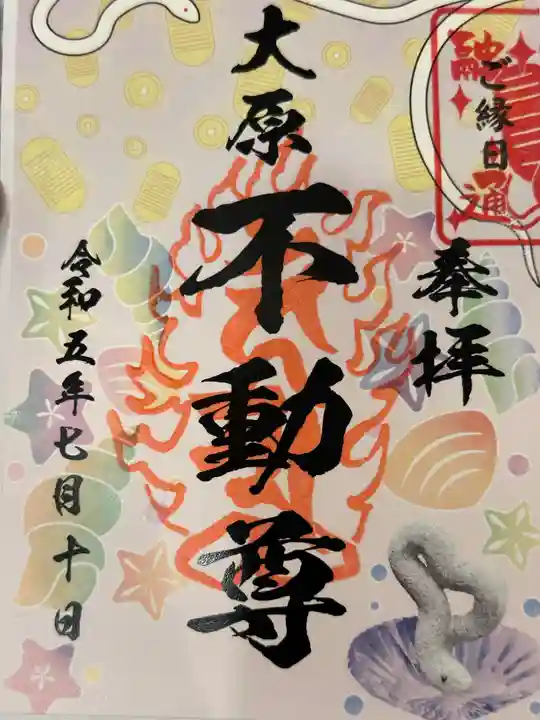 ご縁日
奉拝
大原
不動尊
令和五年七月十日
融通